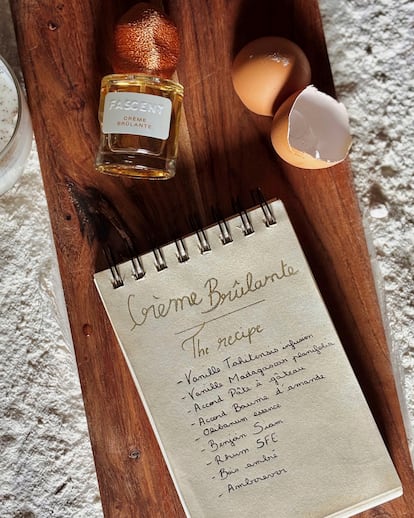 FASCENT
CRÈME
BRÛLANTE
Crème Brûlante
The recipe
- Vanille Tahitensis infusion
- Vanille Madagascar planifolia
- Accord Pâte à gâteau
- Accord Baume d'amande
Olibanum essence
- Benjoin Siam
- Rhum SFE
- Bois ambré
- Ambrorevor